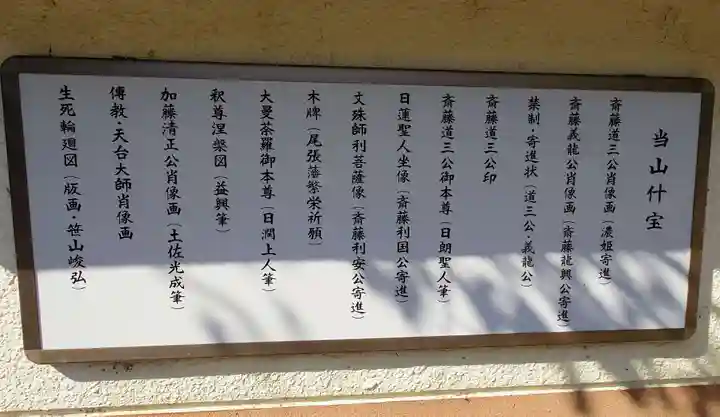 当山什宝
斎藤道三公肖像画(濃姫寄進)
斎藤義龍公肖像画(斎藤龍興公寄進)
禁制・寄進状(道三公・義龍公)
斎藤道三公印
斎藤道三公御本尊(日朗聖人筆)
日蓮聖人坐像(斎藤利国公寄進)
文珠師利菩薩像(斎藤利安公寄進)
木牌(尾張藩繁栄祈願)
大曼荼羅御本尊(日潤上人筆)
釈尊涅槃図(益興筆)
加藤清正公肖像画(土佐光成筆)
傳教・天台大師肖像画
生死輪廻図(版画・笹山峻弘)